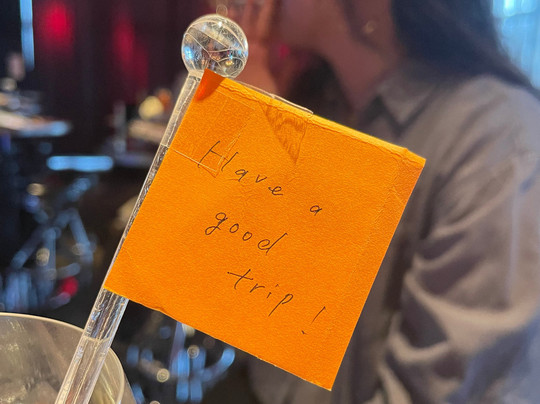 Have a
good
trip!